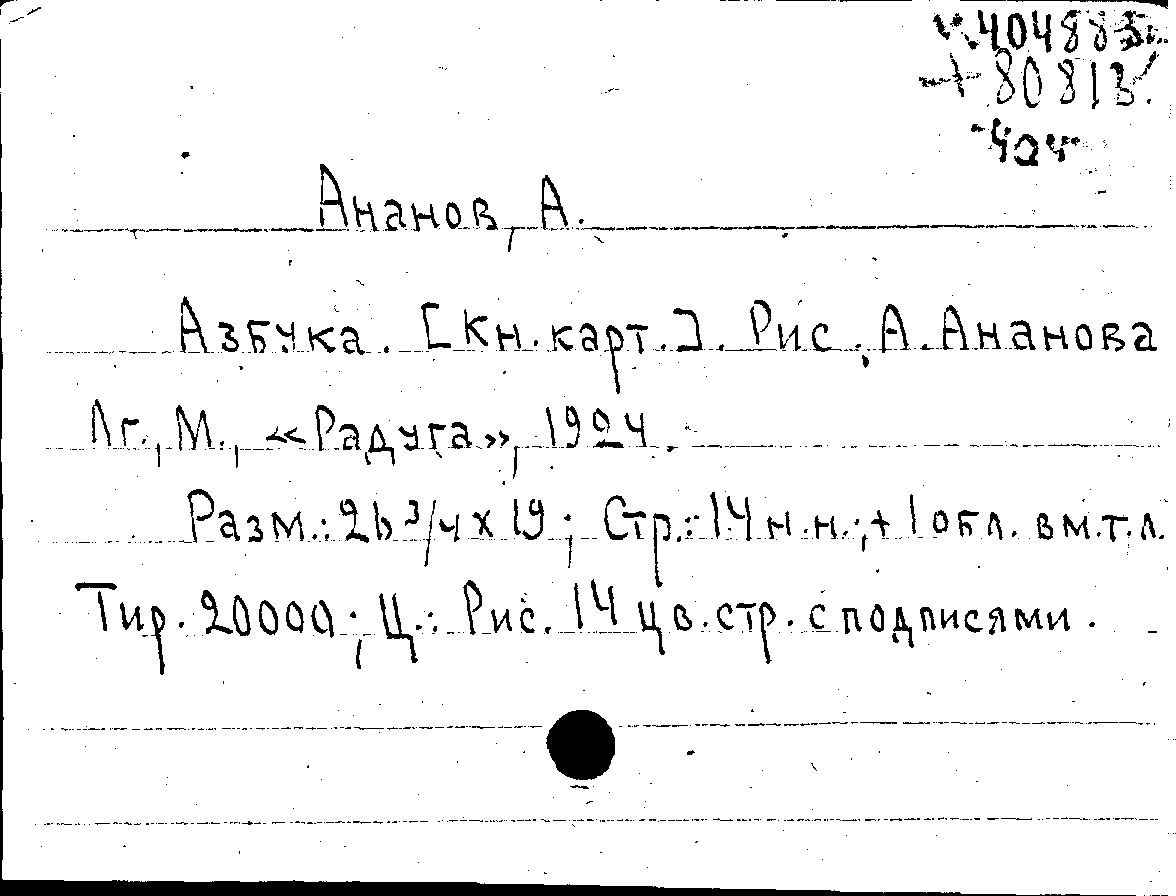 +80813
Ананов, А.
Азбука. [Кн. карт.]. Рис, А. Ананова
Лг., М., «Радуга», 1924.
Разм.: 26 3/4 х 19; Стр.: 14 н.н.; + 1 обл. вм. т.л.
Тир. 20000; Ц.: Рис. 14 цв. стр. с подписями.